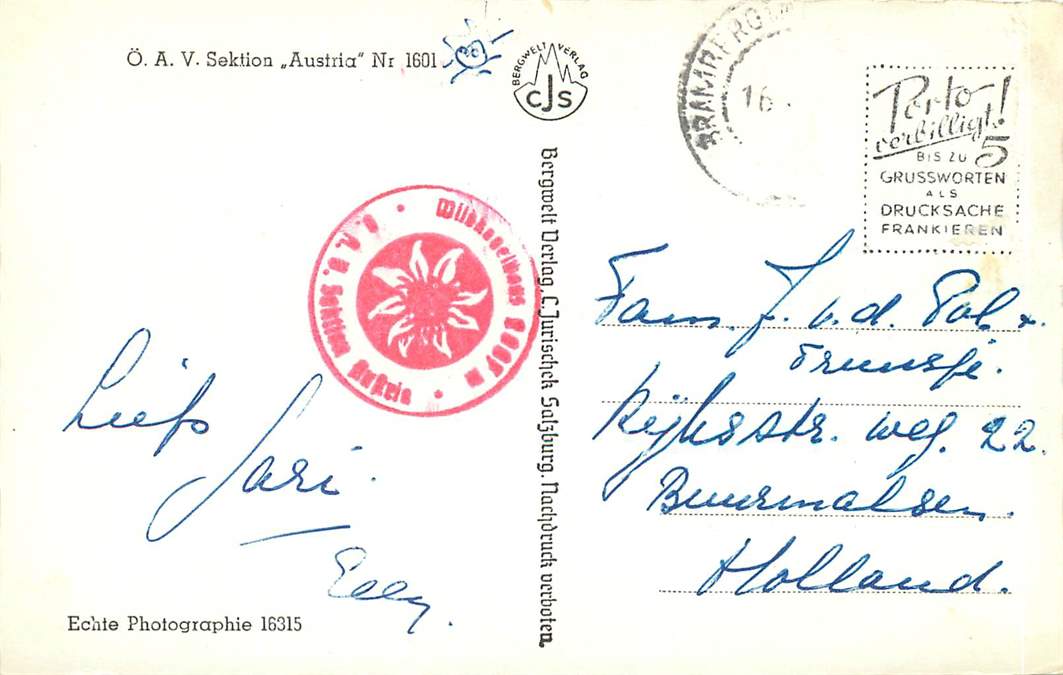 Ö. A. V. Sektion „Austria" Nr 1601
BERGWELT VERLAG
CJS
BRAMBERG
16.
Porto
verbilligt!
BIS ZU 5
GRUSSWORTEN
ALS
DRUCKSACHE
FRANKIEREN
Wildkogelhaus 2007 m
Ö. A. V. Sektion Austria
Bergwelt Verlag, C. Jurischek Salzburg. Nachdruck verboten.
Fam. J. v. d. Pol. +
Fransje.
Rijksstr. weg. 22.
Buurmalsen.
Holland.
Liefs
Jari.
Elly.
Echte Photographie 16315